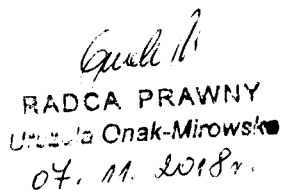 RADCA PRAWNY
Urszula Onak-Mirowska
07. 11. 2018r.